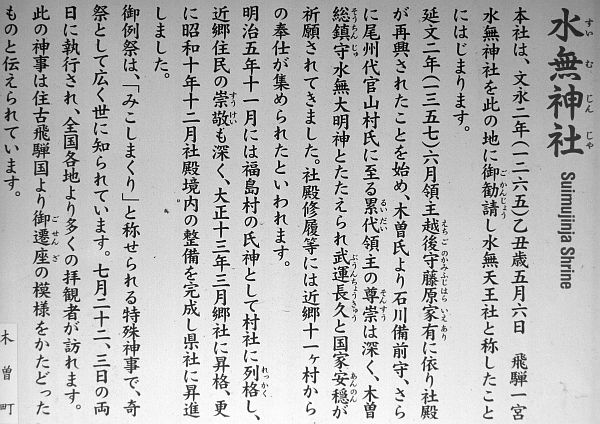 水無神社
すいむじんじゃ
Suimujinja Shrine
本社は、文永二年(一二六五)乙丑歳五月六日　飛騨一宮
水無神社を此の地に御勧請し水無天王社と称したこと
ごかんじょう
にはじまります。
延文二年(一三五七)六月領主越後守藤原家有に依り社殿
えちごのかみふじはらいえあり
が再興されたことを始め、木曽氏より石川備前守、さら
に尾州代官山村氏に至る累代領主の尊崇は深く、木曽
るいだい
そんすう
総鎮守水無大明神とたたえられ武運長久と国家安穏が
そうちんじゅ
ぶうんちょうきゅう
あんのん
祈願されてきました。社殿修履等には近郷十一ヶ村から
の奉仕が集められたといわれます。
明治五年十一月には福島村の氏神として村社に列格し、
れっかく
近郷住民の崇敬も深く、大正十三年三月郷社に昇格、更
すうけい
に昭和十年十二月社殿境内の整備を完成し県社に昇進
しました。
御例祭は、「みこしまくり」と称せられる特殊神事で、奇
祭として広く世に知られています。七月二十二、三日の両
日に執行され、全国各地より多くの拝観者が訪れます。
此の神事は往古飛騨国より御遷座の模様をかたどった
ごせんざ
ものと伝えられています。
木曽町